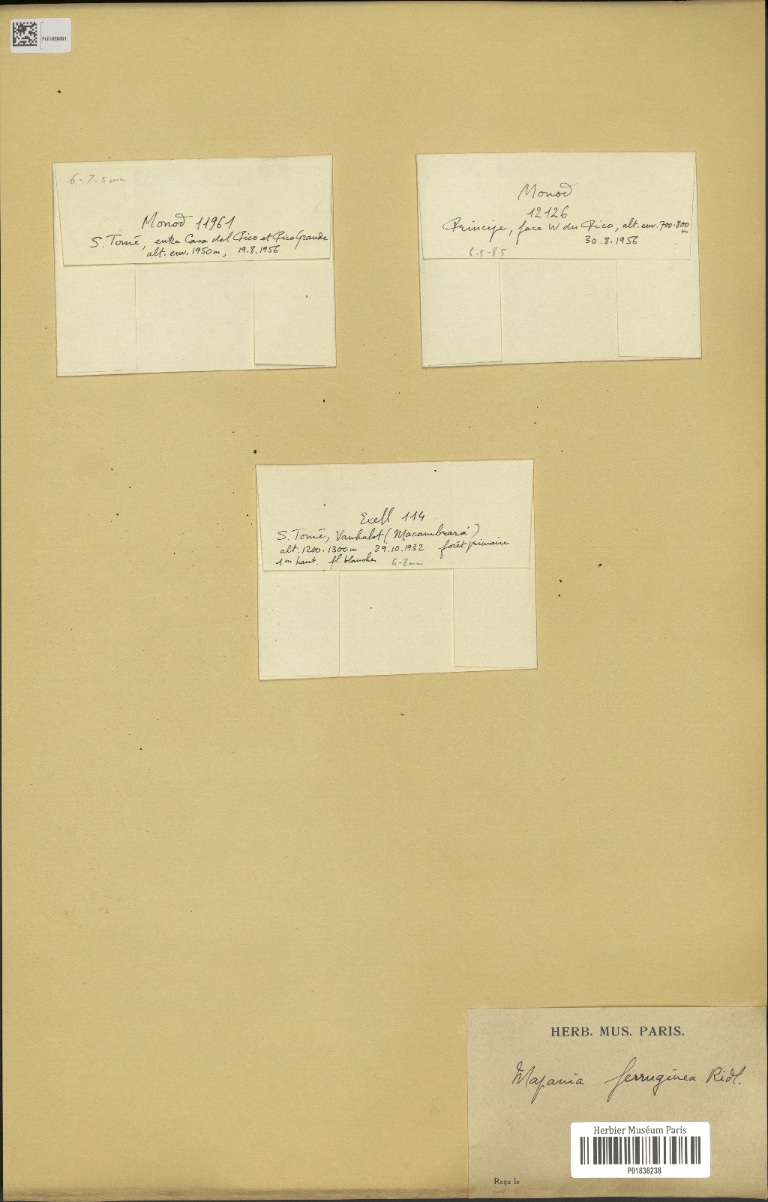 6-7.5 mm
Monod 11961
S. Tomé, entre Casa del Pico et Pico Grande
alt. env. 1950m, 19.8.1956
Monod
12126
Principe, face W du Pico, alt. env. 700-800
m
30.8.1956
6.5-8.5
Exell 114
S. Tomé, Vanhulst (Macambrará)
alt. 1200-1300m 29.10.1932 forêt primaire
1m haut. fl blanches 6-8 mm
HERB. MUS. PARIS.
Mapania ferruginea Ridl.
Herbier Muséum Paris
P01838238
Reçu le